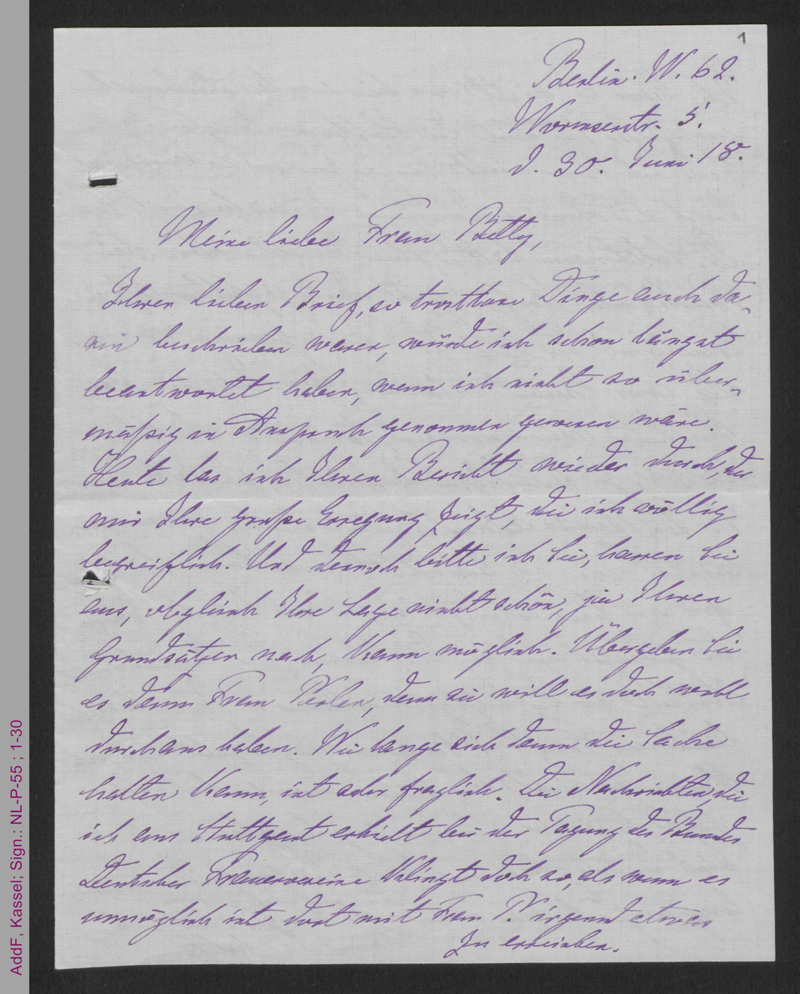 1
Berlin. W. 62.
Wormserstr. 5.
d. 30. Juni 18.
Meine liebe Frau Betty,
Ihren lieben Brief, so trostbare Dinge auch da-
rin beschrieben waren, würde ich schon längst
beantwortet haben, wenn ich nicht so über-
mäßig in Anspruch genommen gewesen wäre.
Heute las ich Ihren Bericht wieder durch, der
mir Ihre große Erregung zeigt, die ich völlig
begreiflich. Und dennoch bitte ich Sie, harren Sie
aus, obgleich Ihre Lage nicht schön, ja Ihren
Grundsätzen nach, kaum möglich. Übergeben Sie
es dann Frau, denn sie will es doch wohl
durchaus haben. Wie lange sich dann die Sache
halten kann, ist aber fraglich. Die Nachrichten, die
ich aus Stuttgart erhielt bei der Tagung des Bundes
Deutscher Frauenvereine klingt doch so, als wenn es
unmöglich ist dort mit Frau P. irgend etwas
zu erreichen.
AddF, Kassel; Sign.: NL-P-55 ; 1-30